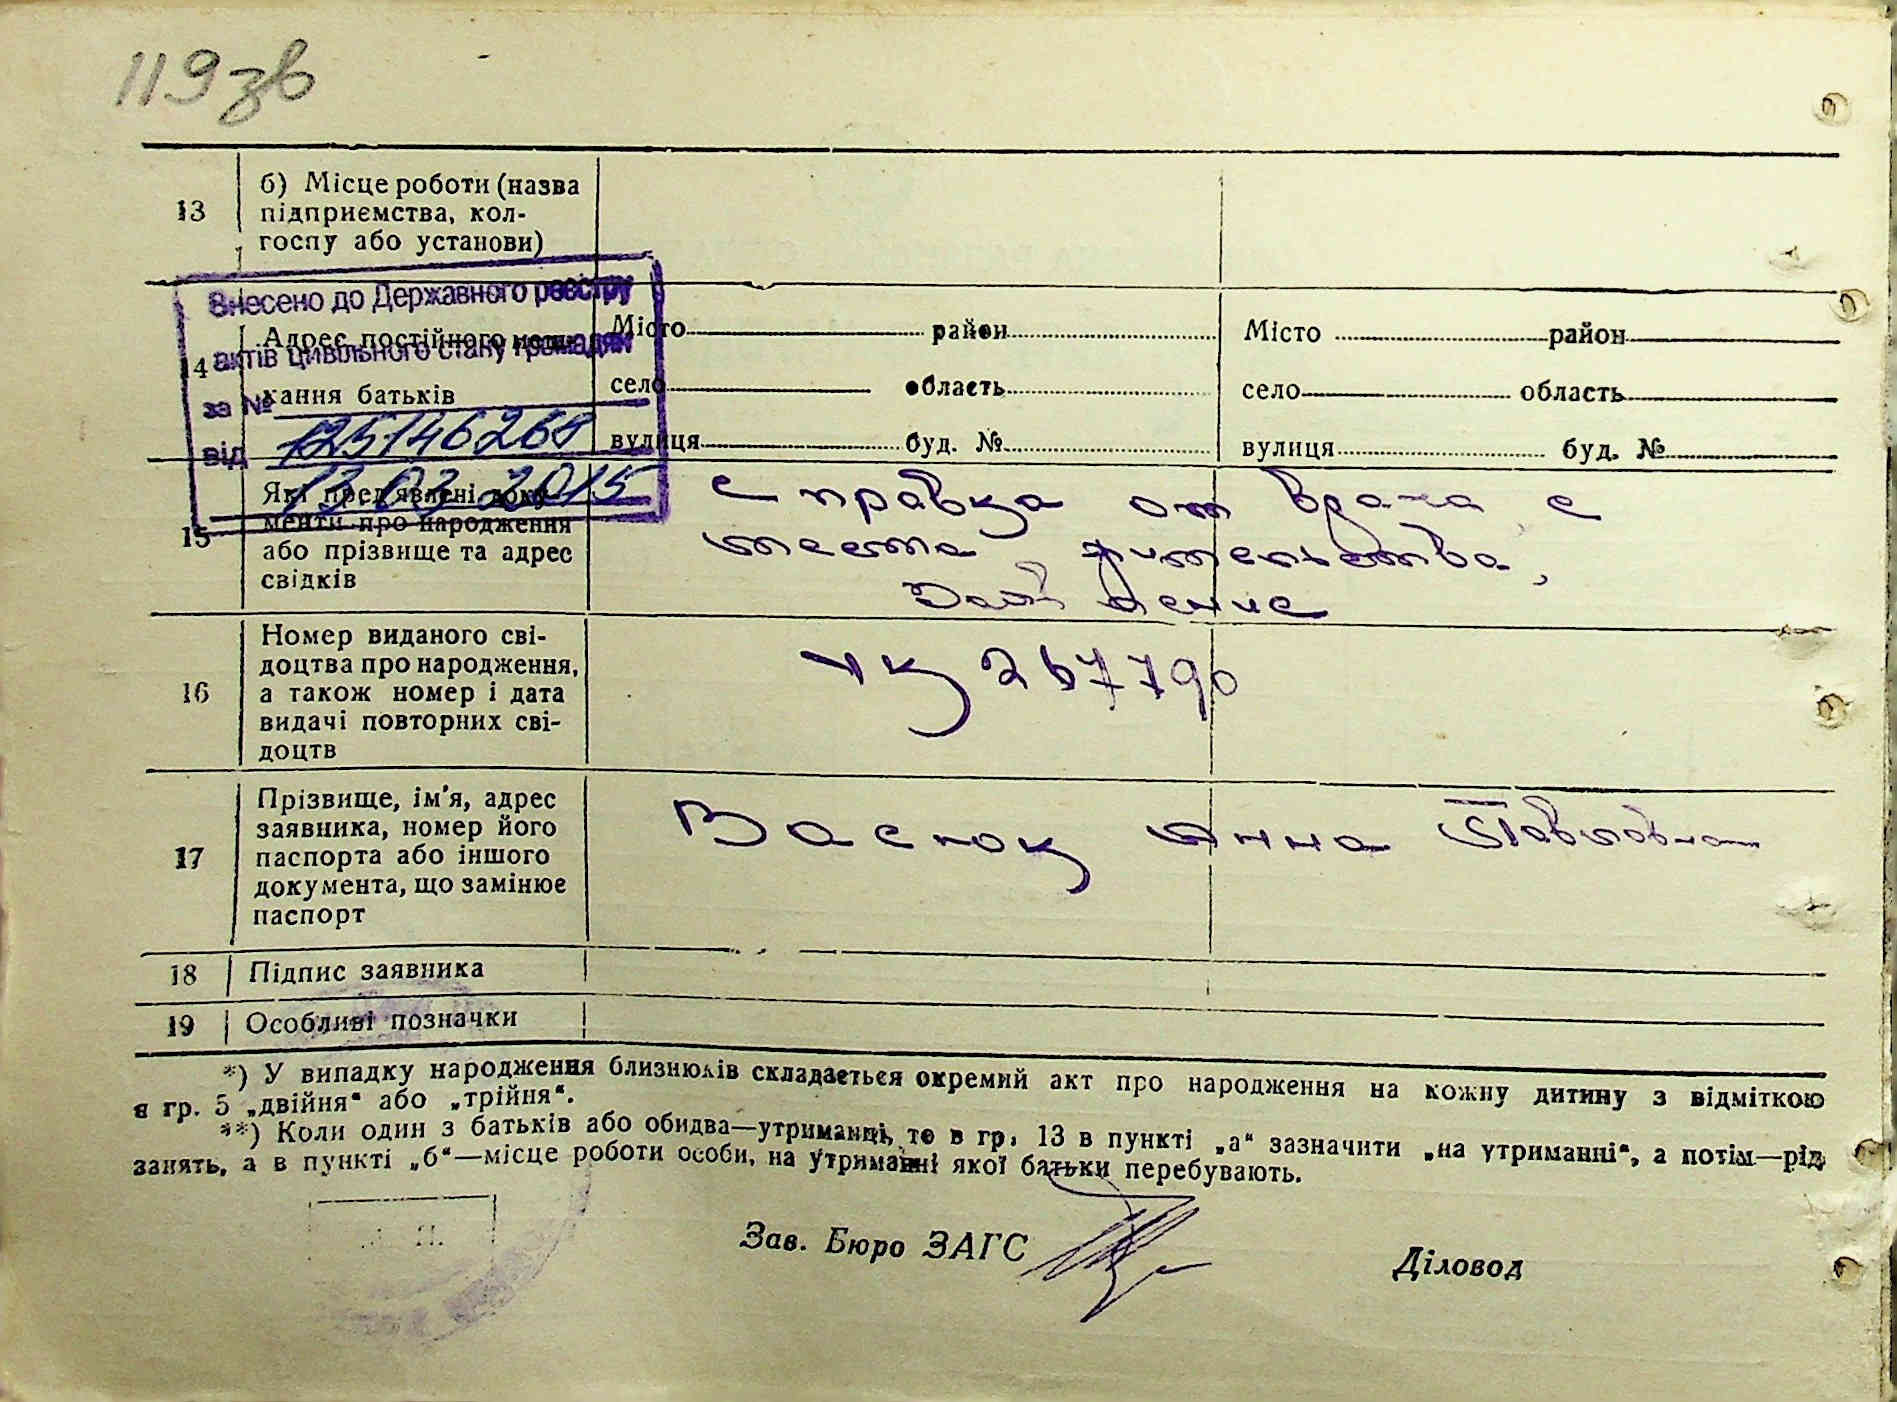 119зв
13
б) Місце роботи (назва
підприємства, кол-
госпу або установи)
Внесено до Державного реєстру
актів цивільного стану громадян
за №
125146268
від
13 03 2015
14
Адрес постійного меш-
кання батьків
Місто район
село область
вулиця буд. №
Місто район
село область
вулиця буд. №
15
Які пред'явлені доку-
менти про народження
або прізвище та адрес
свідків
Справка от врача с
места жительства,
16
Номер виданого сві-
доцтва про народження,
а також номер і дата
видачі повторних сві-
доцтв
УК 267790
17
Прізвище, ім'я, адрес
заявника, номер його
паспорта або іншого
документа, що замінює
паспорт
Васюк Анна Павловна
18
Підпис заявника
19
Особливі позначки
*) У випадку народження близнюків складається окремий акт про народження на кожну дитину з відміткою
в гр. 5 „двійня“ або „трійня“.
**) Коли один з батьків або обидва—утриманці, то в гр. 13 в пункті „а“ зазначити „на утриманні“, а потім—рід
занять, а в пункті „б“—місце роботи особи, на утриманні якої батьки перебувають.
Зав. Бюро ЗАГС
Діловод